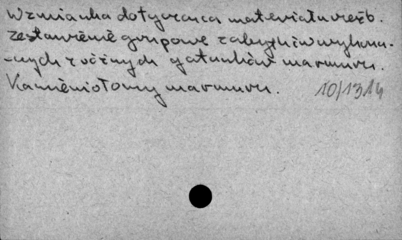 Wzmianka dotycząca materiału rzeźb.
zestawienie grupowe zabytków wykona-
-nych z różnych gatunków marmuru.
Kamieniołomy marmuru. 10/1314